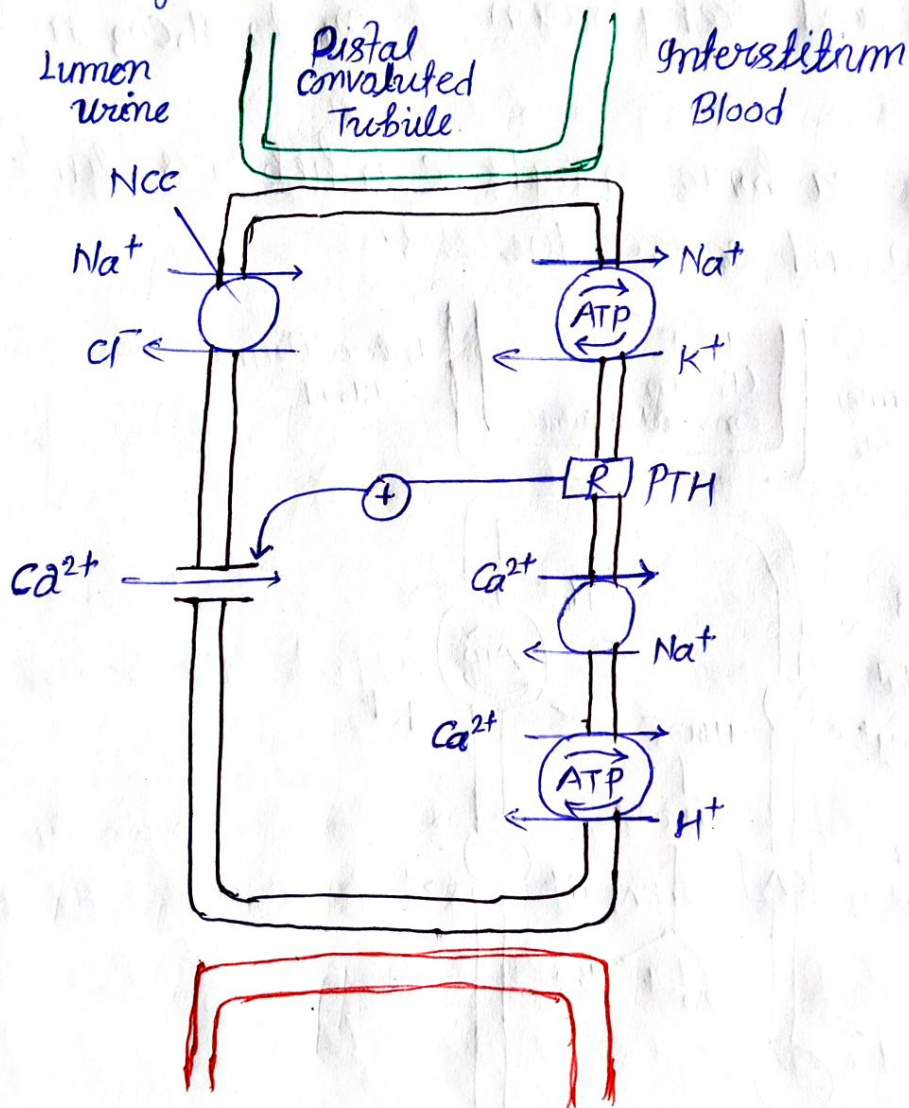 Lumen
urine
Distal
convoluted
Trubule
Interstitinm
Blood
NCC
Na⁺
Cl⁻
Na⁺
ATP
K⁺
R PTH
+
Ca²⁺
Ca²⁺
Na⁺
Ca²⁺
ATP
H⁺